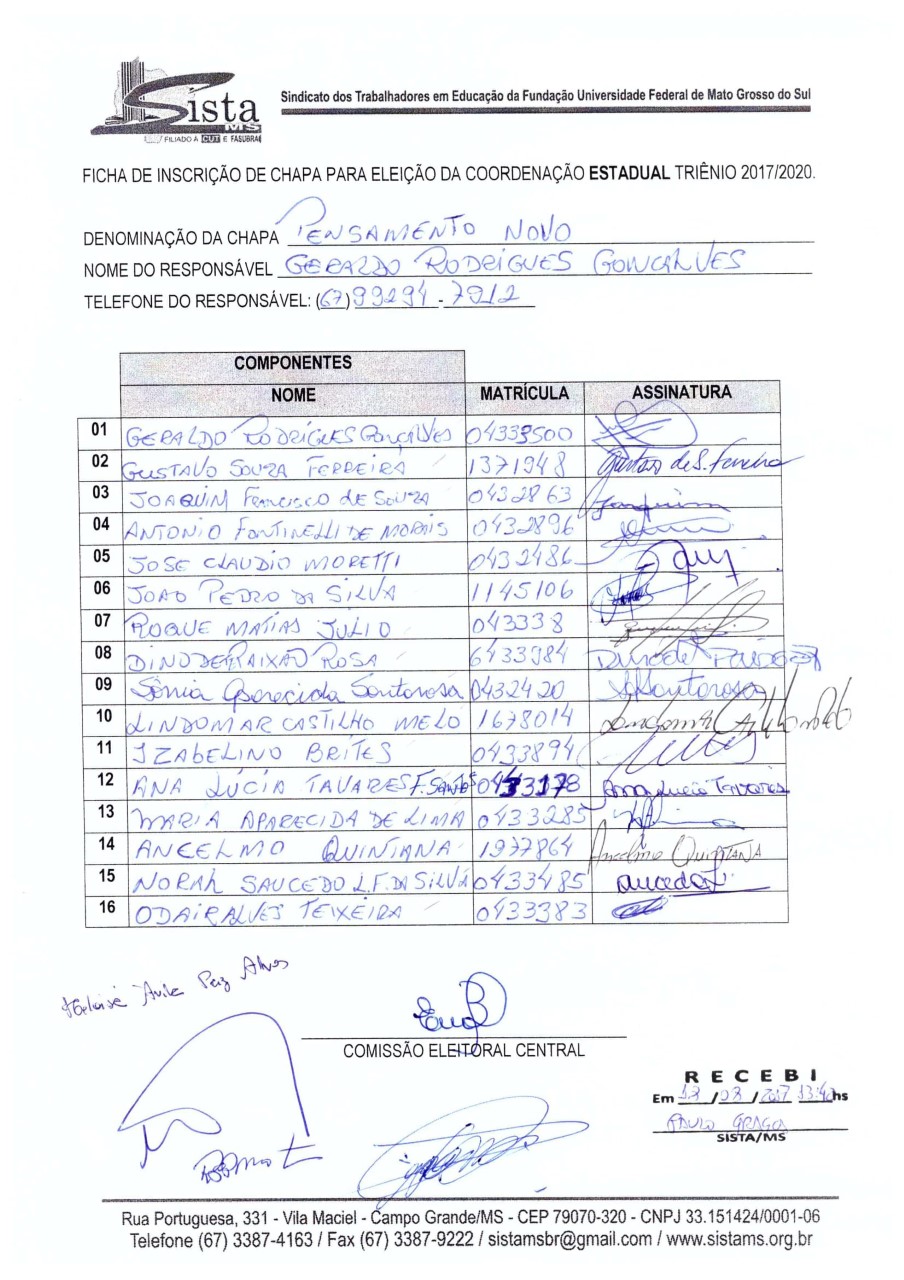 Sista
MS
FILIADO À CUT E FASUBRA
Sindicato dos Trabalhadores em Educação da Fundação Universidade Federal de Mato Grosso do Sul
FICHA DE INSCRIÇÃO DE CHAPA PARA ELEIÇÃO DA COORDENAÇÃO ESTADUAL TRIÊNIO 2017/2020.
DENOMINAÇÃO DA CHAPA PENSAMENTO NOVO
NOME DO RESPONSÁVEL GERALDO RODRIGUES GONÇALVES
TELEFONE DO RESPONSÁVEL: (67) 99294-7912
COMPONENTES
NOME MATRÍCULA ASSINATURA
01 GERALDO RODRIGUES GONÇALVES 04339500
02 GUSTAVO SOUZA FERREIRA 1371948 Gustavo de S. Ferreira
03 JOAQUIM FRANCISCO DE SOUZA 0432863 Joaquim
04 ANTONIO FONTINELLI DE MORAIS 0432896
05 JOSE CLAUDIO MORETTI 0432486
06 JOAO PEDRO DA SILVA 1145106
07 ROQUE MATIAS JULIO 043338
08 DINO DE PAIXÃO ROSA 6433984
09 Sônia Aparecida Santarosa 0432420 Santarosa
10 LINDOMAR CASTILHO MELO 1678014
11 IZABELINO BRITES 0433894
12 ANA LÚCIA TAVARES F. SANTOS 0433178 Ana Lucia Tavares
13 MARIA APARECIDA DE LIMA 0433285
14 ANCELMO QUINTANA 1977864 Ancelmo QUINTANA
15 NORAH SAUCEDO L.F. DA SILVA 0433485 Saucedo
16 ODAIR ALVES TEIXEIRA 0433383
Heloise Avila Paz Alves
COMISSÃO ELEITORAL CENTRAL
RECEBI
Em /08/2017 13:40hs
PAULO
SISTA/MS
Rua Portuguesa, 331 - Vila Maciel - Campo Grande/MS - CEP 79070-320 - CNPJ 33.151424/0001-06
Telefone (67) 3387-4163 / Fax (67) 3387-9222 / sistamsbr@gmail.com / www.sistams.org.br